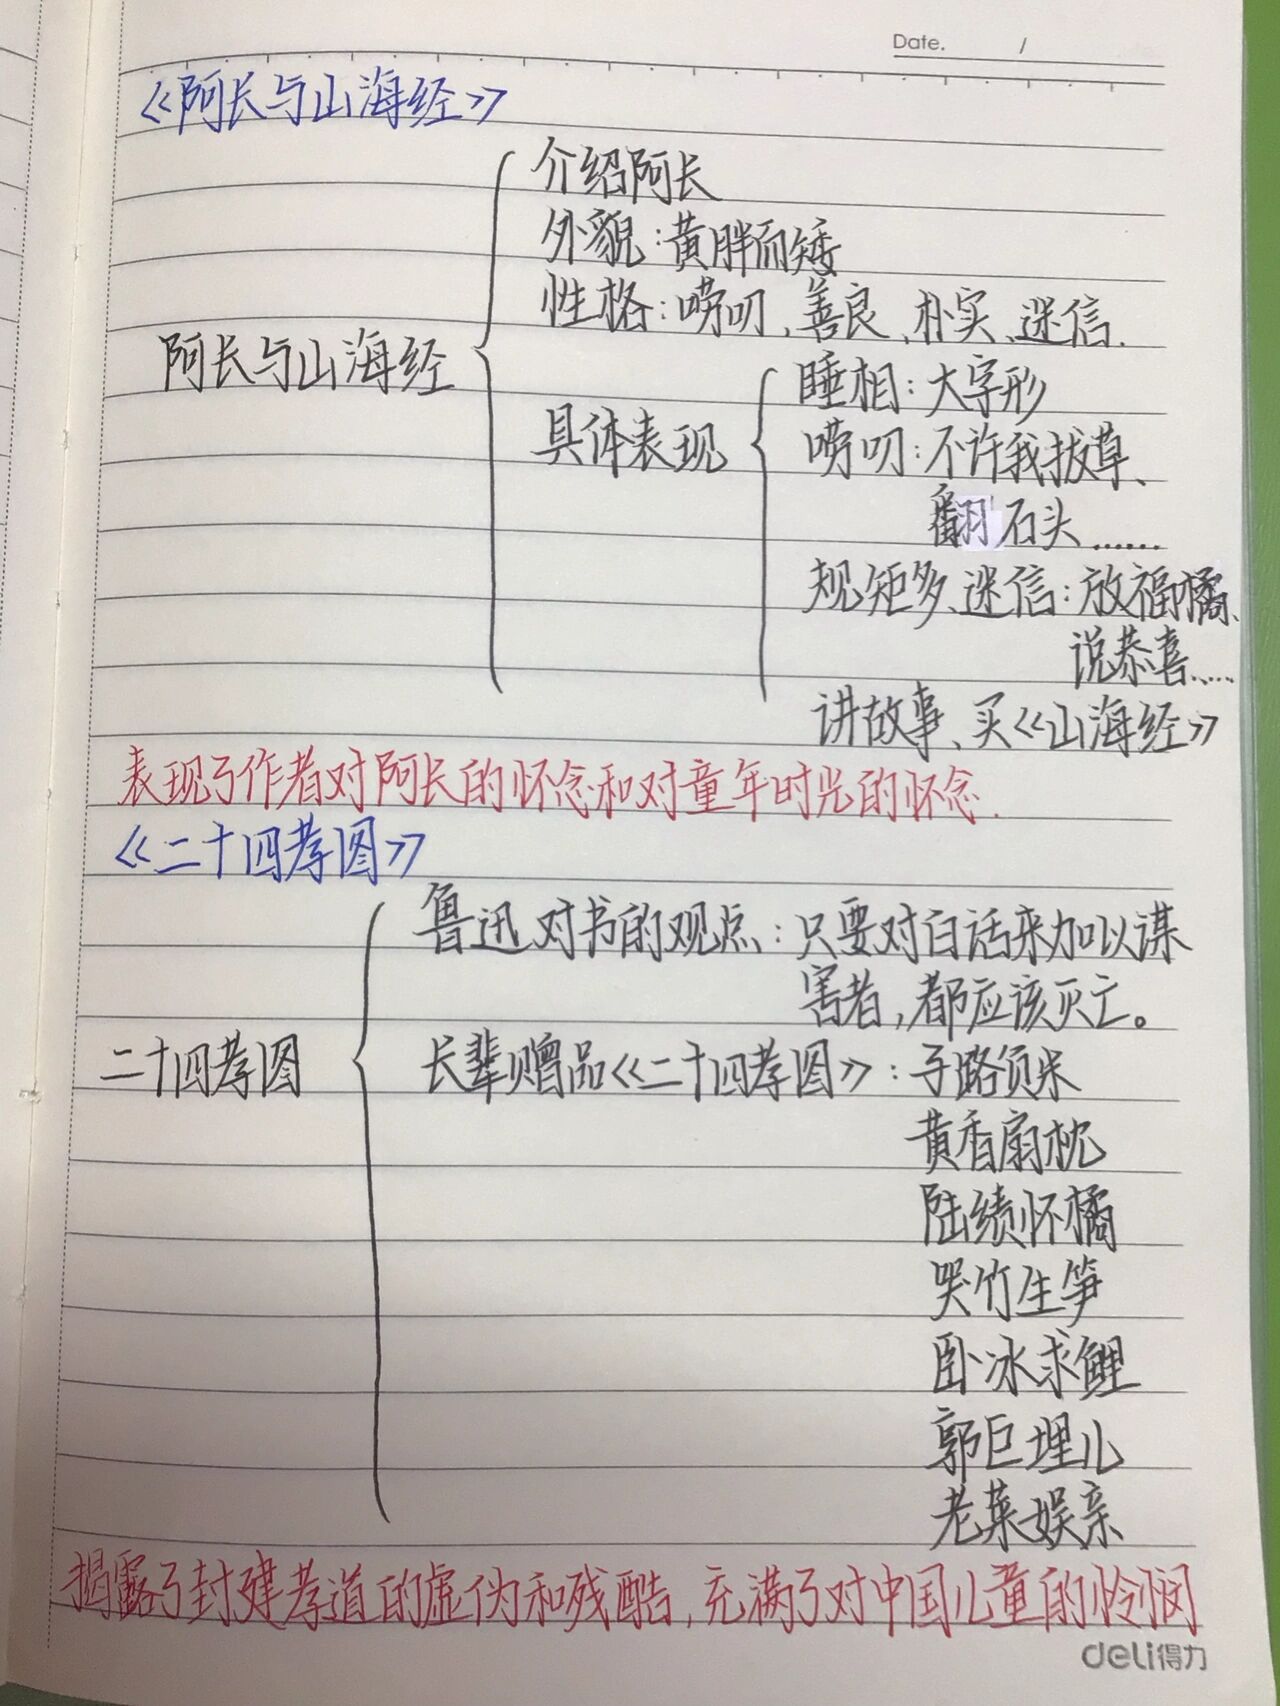 Date. /
《阿长与山海经》
介绍阿长
外貌：黄胖而矮
性格：唠叨、善良、朴实、迷信.
阿长与山海经
睡相：大字形
具体表现
唠叨：不许我拔草、
翻石头……
规矩多、迷信：放福橘、
说恭喜……
讲故事、买《山海经》
表现了作者对阿长的怀念和对童年时光的怀念.
《二十四孝图》
鲁迅对书的观点：只要对白话来加以谋
害者,都应该灭亡。
二十四孝图
长辈赠品《二十四孝图》：子路负米
黄香扇枕
陆绩怀橘
哭竹生笋
卧冰求鲤
郭巨埋儿
老莱娱亲
揭露了封建孝道的虚伪和残酷,充满了对中国儿童的怜悯
deli得力